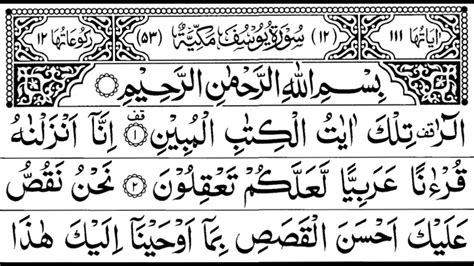 اٰيَاتُهَا ١١١ (١٢) سُوْرَةُ يُوْسُفَ مَكِّيَّةٌ (٥٣) رُكُوْعَاتُهَا ١٢
بِسْمِ اللّٰهِ الرَّحْمٰنِ الرَّحِيْمِ
الٓرٰ ۚ قف تِلْكَ اٰيٰتُ الْكِتٰبِ الْمُبِيْنِ ۝١ قف اِنَّاۤ اَنْزَلْنٰهُ
قُرْءٰنًا عَرَبِيًّا لَّعَلَّكُمْ تَعْقِلُوْنَ ۝٢ نَحْنُ نَقُصُّ
عَلَيْكَ اَحْسَنَ الْقَصَصِ بِمَاۤ اَوْحَيْنَاۤ اِلَيْكَ هٰذَا